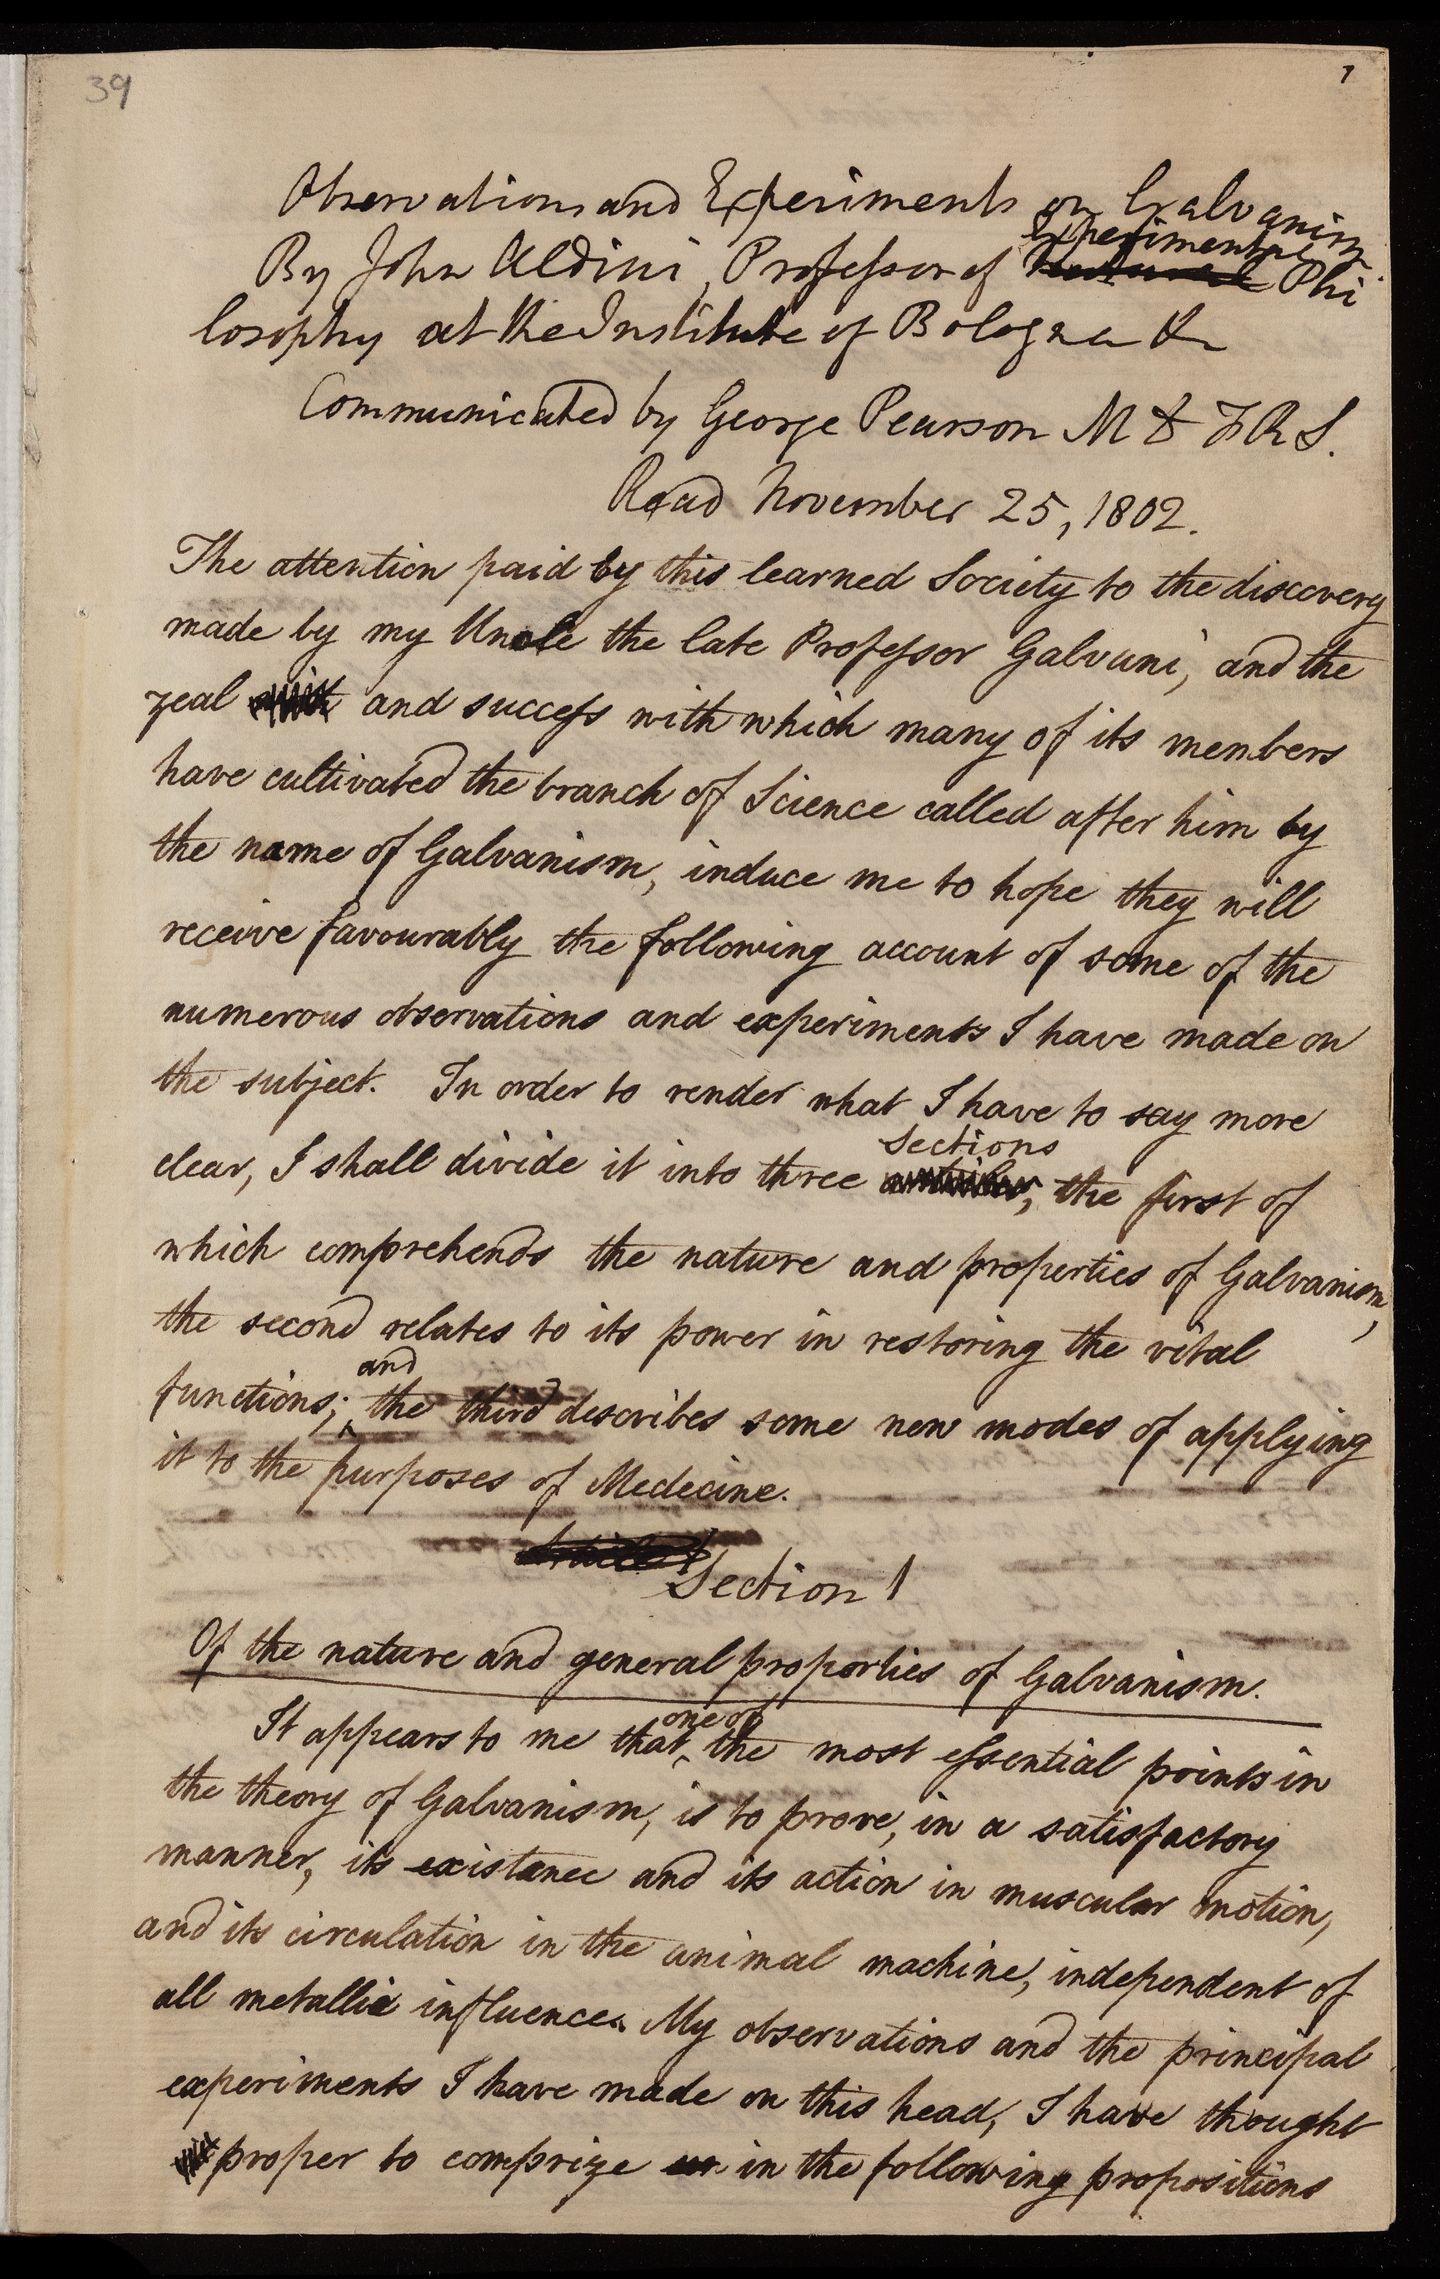 39
1
Observations and Experiments on Galvanism
Experimental
By John Aldini, Professor of Natural Phi
losophy at the Institute of Bologna &c
Communicated by George Pearson M D F R S.
Read November 25, 1802.
The attention paid by this learned Society to the discovery
made by my Uncle the late Professor Galvani, and the
zeal and success with which many of its members
have cultivated the branch of Science called after him by
the name of Galvanism, induce me to hope they will
receive favourably the following account of some of the
numerous observations and experiments I have made on
the subject. In order to render what I have to say more
sections
clear, I shall divide it into three articles, the first of
which comprehends the nature and properties of Galvanism,
the second relates to its power in restoring the vital
and
functions; ‸ the third describes some new modes of applying
it to the purposes of Medecine.
Article 1
Section 1
Of the nature and general properties of Galvanism.
one of
It appears to me that ‸ the most essential points in
the theory of Galvanism, is to prove, in a satisfactory
manner, its existence and its action in muscular motion,
and its circulation in the animal machine, independent of
all metallic influence. My observations and the principal
experiments I have made on this head, I have thought
proper to comprize in the following propositions